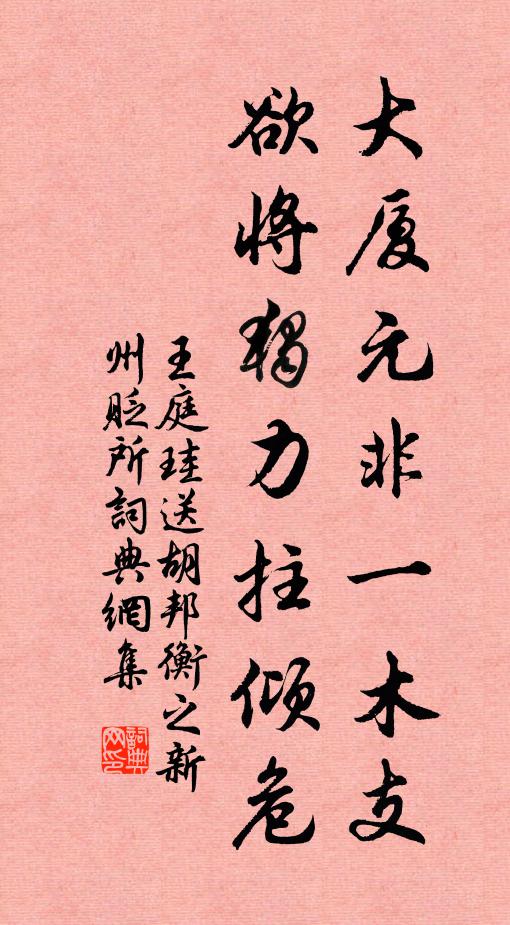 大厦元非一木支
欲將獨力拄傾危
王庭珪送胡邦衡之新
州貶所詞典網集
詞典網印